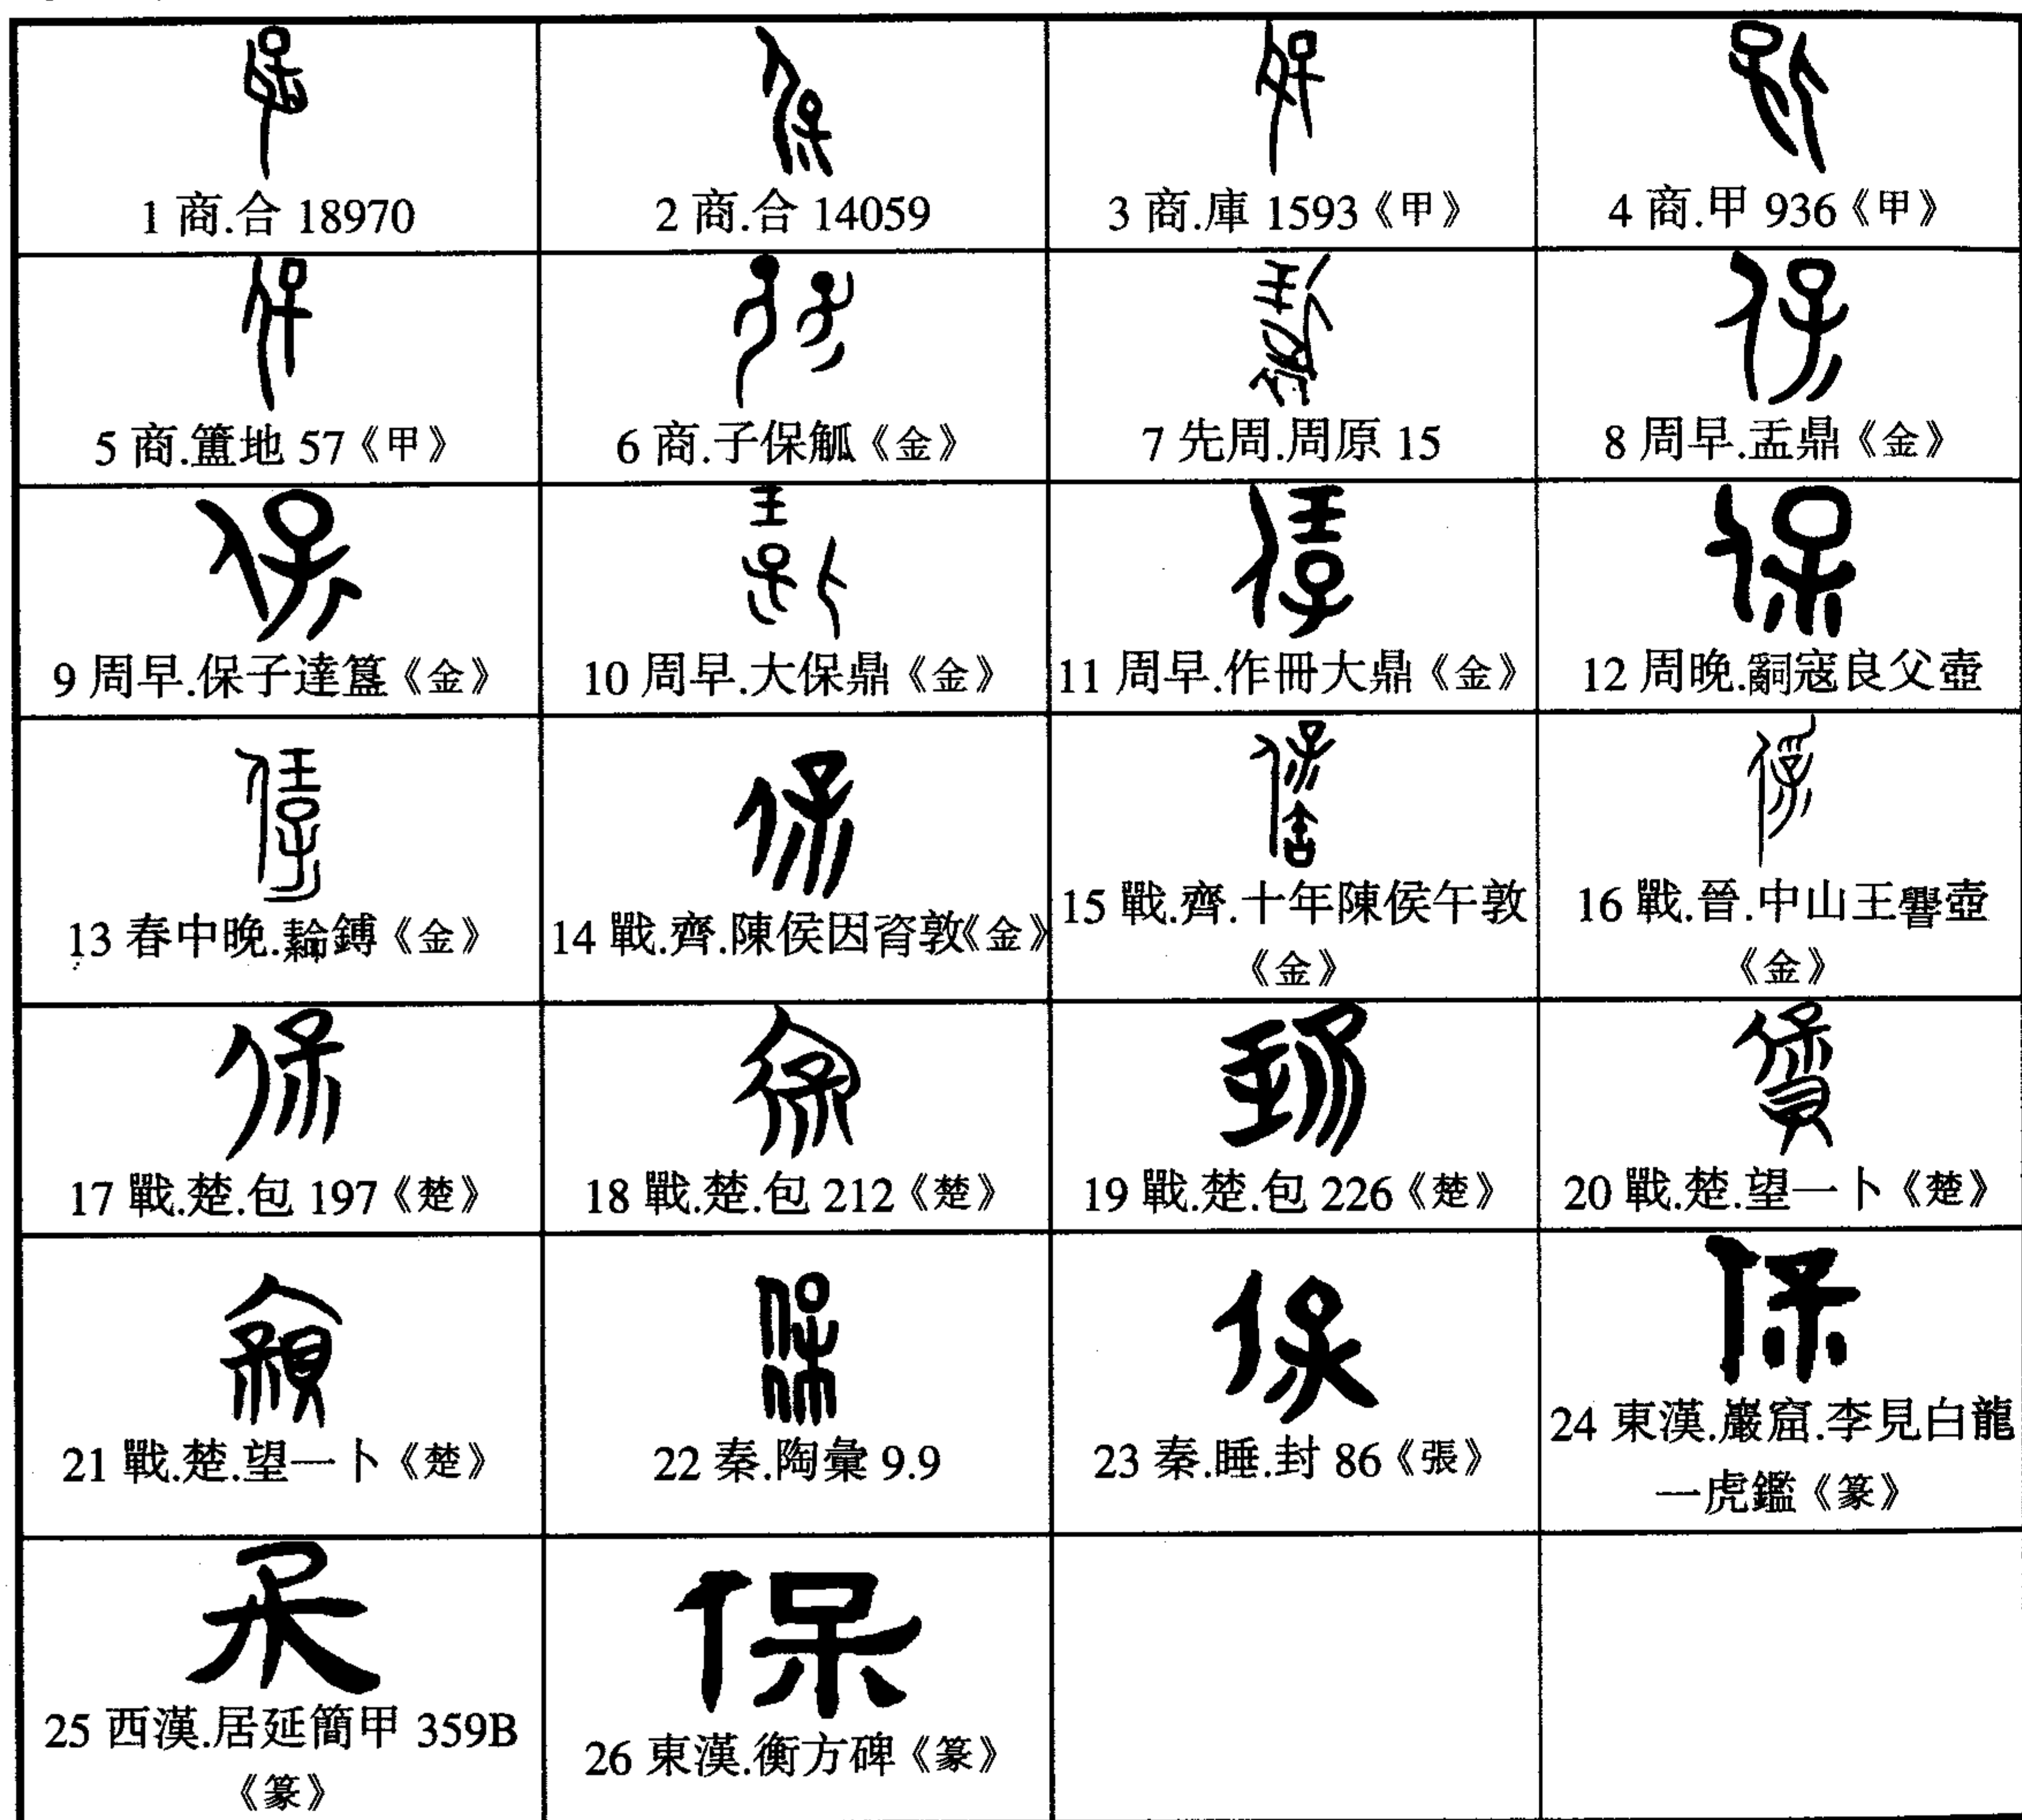 1 商.合 18970
2 商.合 14059
3 商.庫 1593《甲》
4 商.甲 936《甲》
5 商.簠地 57《甲》
6 商.子保觚《金》
7 先周.周原 15
8 周早.盂鼎《金》
9 周早.保子達簋《金》
10 周早.大保鼎《金》
11 周早.作冊大鼎《金》
12 周晚.嗣寇良父壺
13 春中晚.鎛《金》
14 戰.齊.陳侯因敦《金》
15 戰.齊.十年陳侯午敦
《金》
16 戰.晉.中山王壺
《金》
17 戰.楚.包 197《楚》
18 戰.楚.包 212《楚》
19 戰.楚.包 226《楚》
20 戰.楚.望一卜《楚》
21 戰.楚.望一卜《楚》
22 秦.陶彙 9.9
23 秦.睡.封 86《張》
24 東漢.巖窟.李見白龍
一虎鑑《篆》
25 西漢.居延簡甲 359B
《篆》
保
26 東漢.衡方碑《篆》